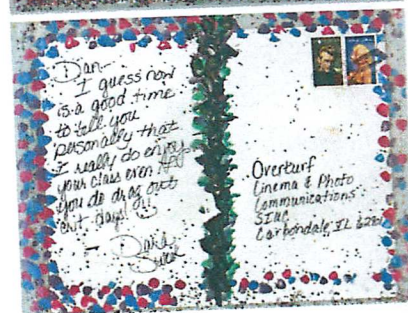 Dan—
I guess now
is a good time
to tell you
personally that
I really do enjoy
your class even tho
you do drag out
crit days! :)
Overturf
Cinema & Photo
Communications
SIUC
Carbondale, IL